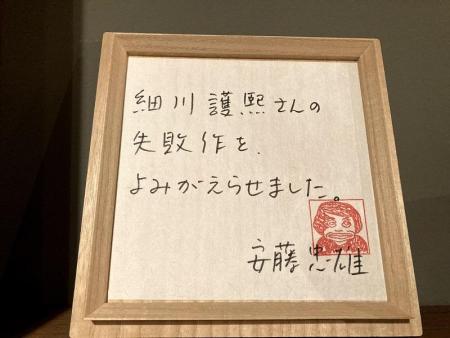 細川護熙さんの
失敗作を、
よみがえらせました。
安藤忠雄